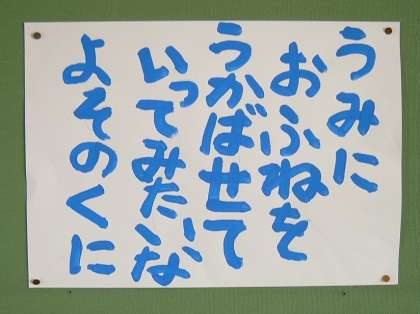 うみに
おふねを
うかばせて
いってみたいな
よそのくに